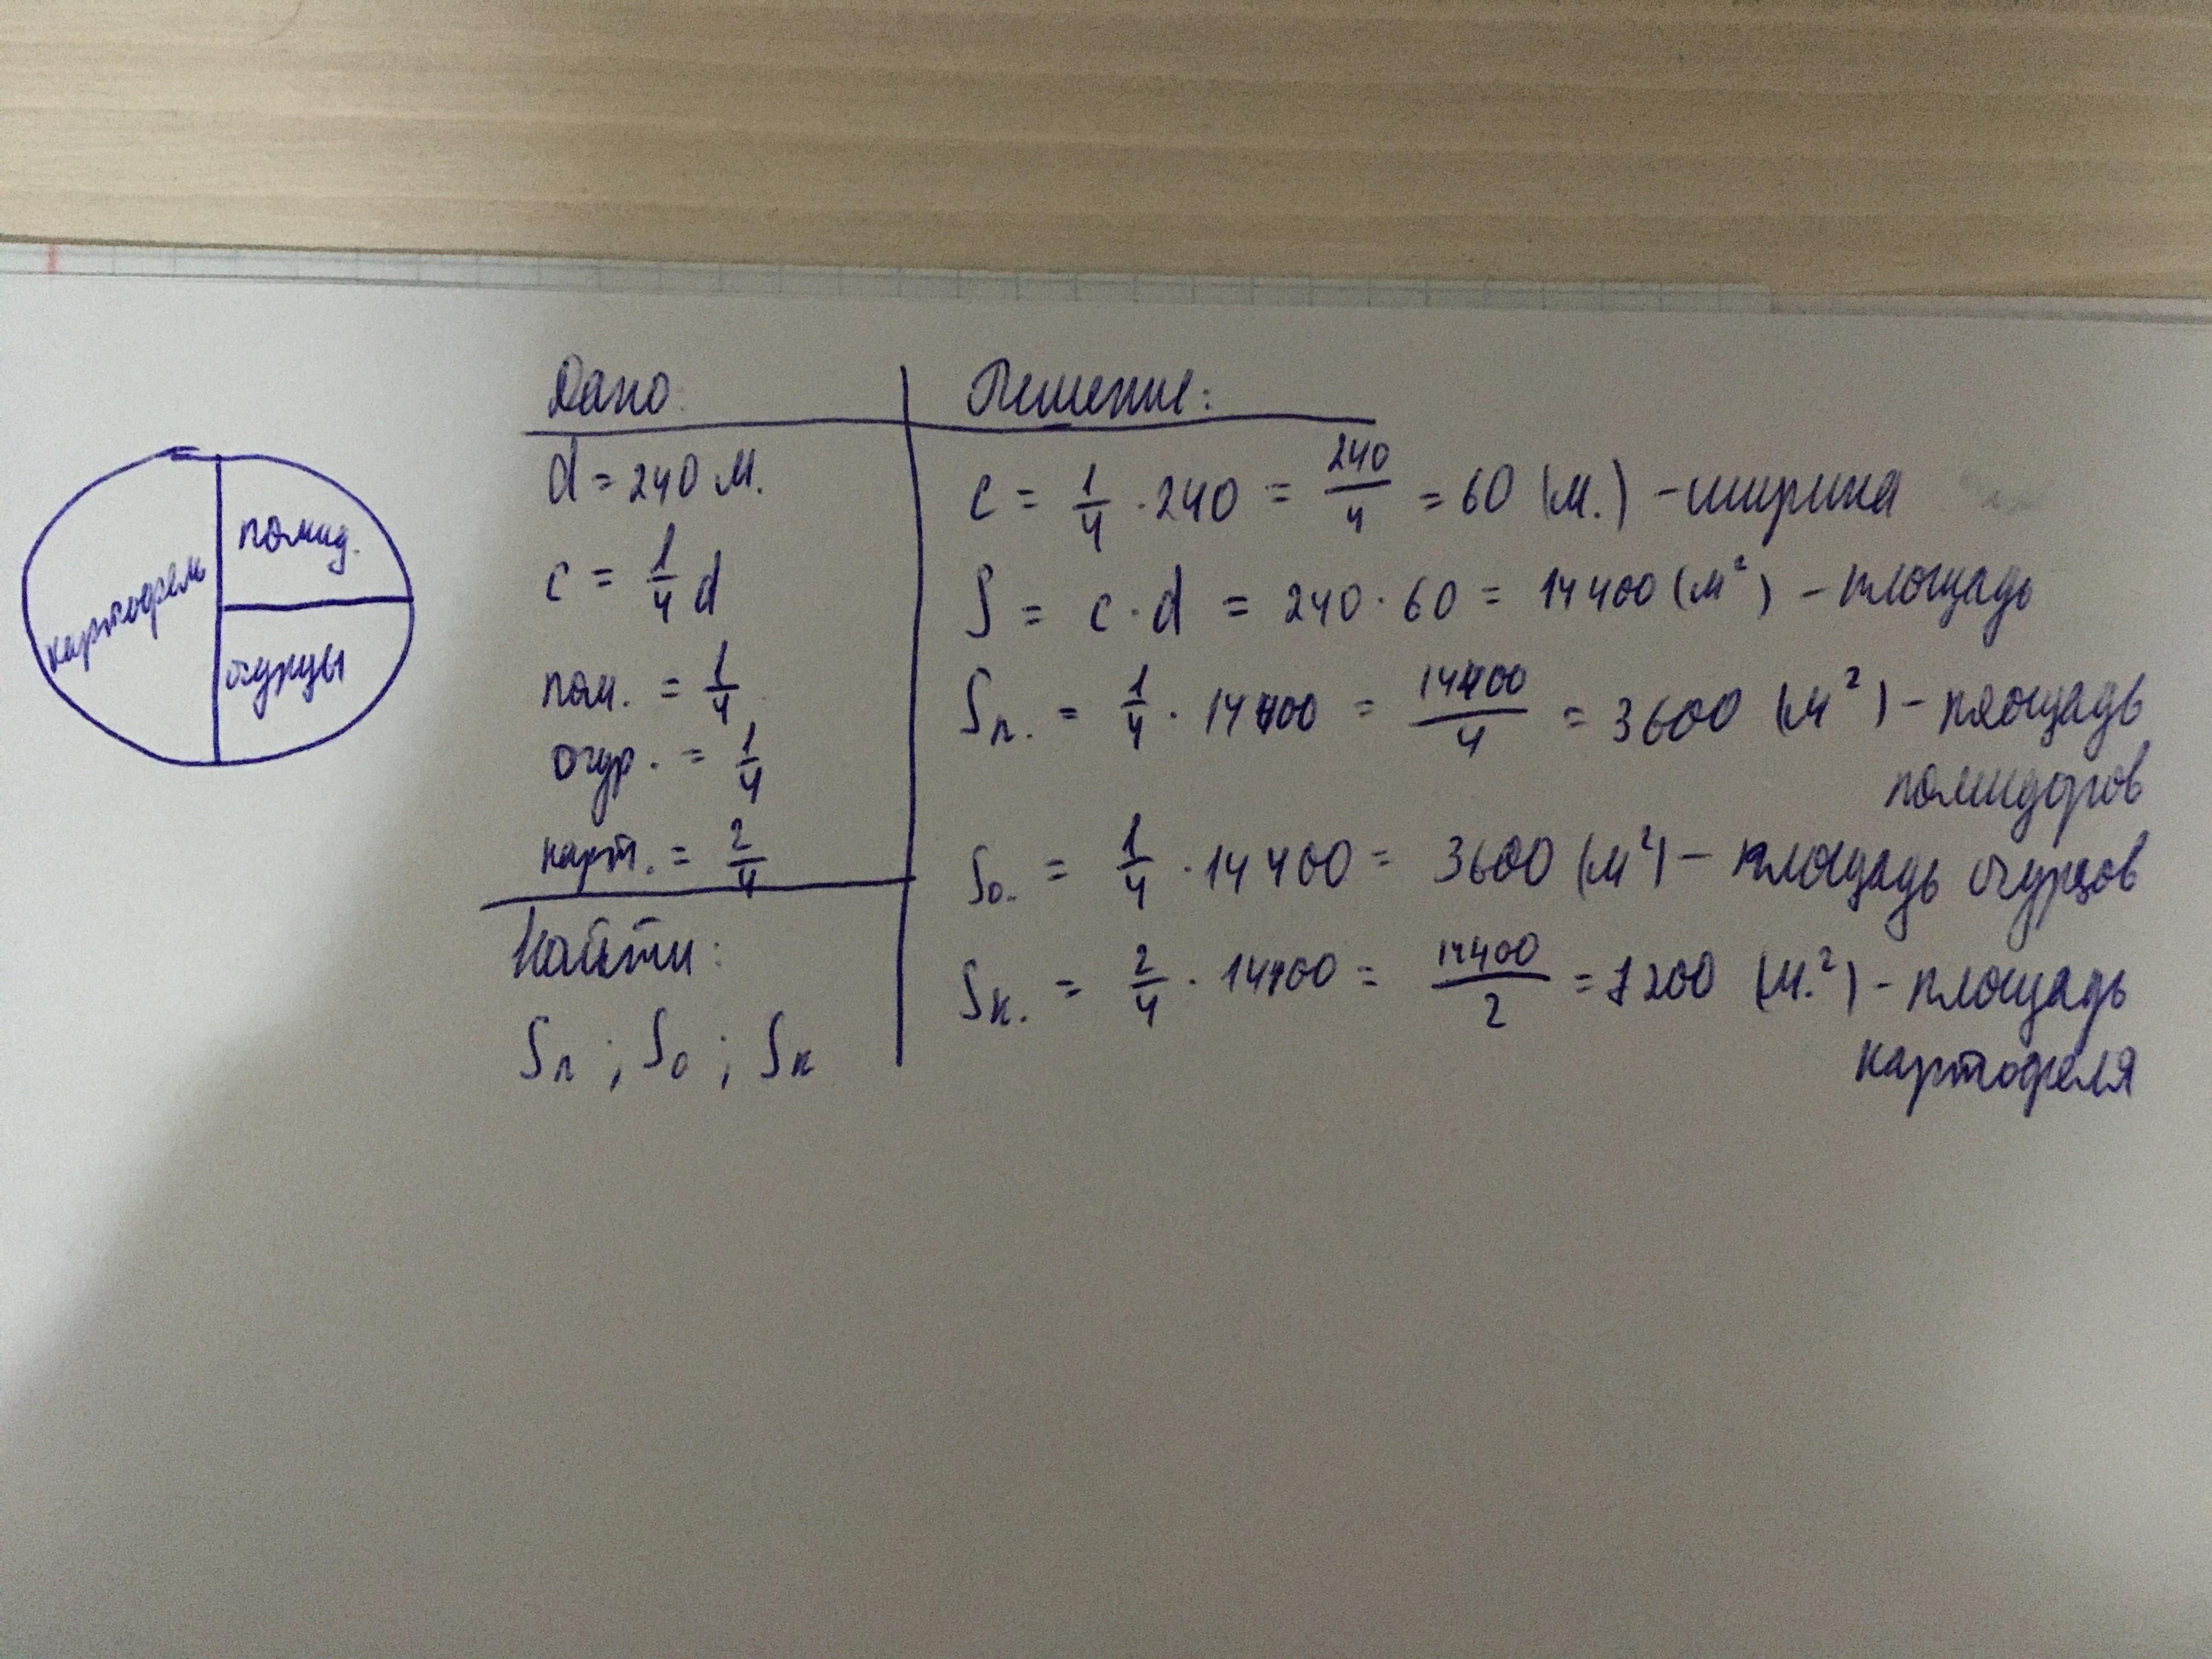 картофель
помид.
огурцы
Дано:
d = 240 м.
c = 1/4 d
пом. = 1/4
огур. = 1/4
карт. = 2/4
Найти:
Sп ; Sо ; Sк
Решение:
c = 1/4 · 240 = 240/4 = 60 (м.) – ширина
S = c · d = 240 · 60 = 14400 (м²) – площадь
Sп. = 1/4 · 14400 = 14400/4 = 3600 (м²) – площадь
помидоров
Sо. = 1/4 · 14400 = 3600 (м²) – площадь огурцов
Sк. = 2/4 · 14400 = 14400/2 = 7200 (м.²) – площадь
картофеля